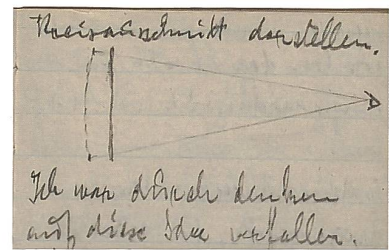 Kreisausschnitt darstellen.
Ich war durch denken
auf diese Idee verfallen.